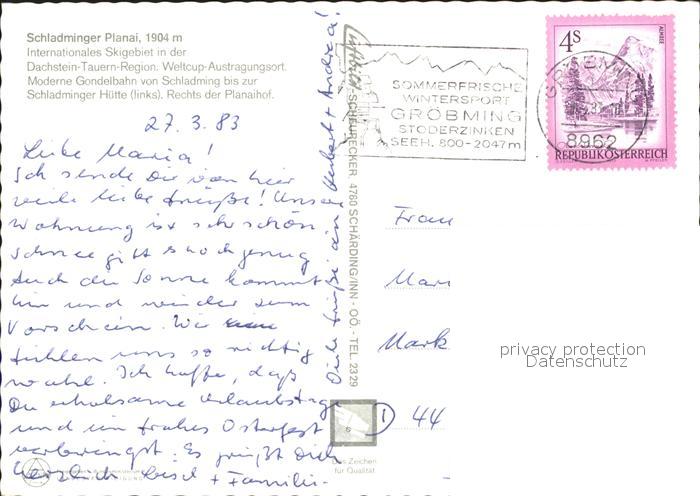 Schladminger Planai, 1904 m
Internationales Skigebiet in der
Dachstein-Tauern-Region. Weltcup-Austragungsort.
Moderne Gondelbahn von Schladming bis zur
Schladminger Hütte (links). Rechts der Planaihof.
27.3.83
Liebe Maria!
Ich sende Dir von hier
viele liebe Grüße! Unsere
Wohnung ist sehr schön
Schnee gibt es noch genug
Auch die Sonne kommt
hin und wieder zum
Vorschein. Wir
fühlen uns so richtig
wohl. Ich hoffe, daß
Du erholsame Urlaubstage
und ein frohes Osterfest
verbringst. Es grüßt Dich
herzlich Liesl + Familie.
Viele Grüße
Herbert + Andrea!
SCHEURECKER 4780 SCHÄRDING/INN - OÖ. - TEL. 23 29
SOMMERFRISCHE
WINTERSPORT
GRÖBMING
STODERZINKEN
SEEH. 800-2047m
GRÖBMING
8962
4S
ALMSEE
REPUBLIK ÖSTERREICH
Frau
Mari
Mark
1
44
Das Zeichen
für Qualität
privacy protection
Datenschutz